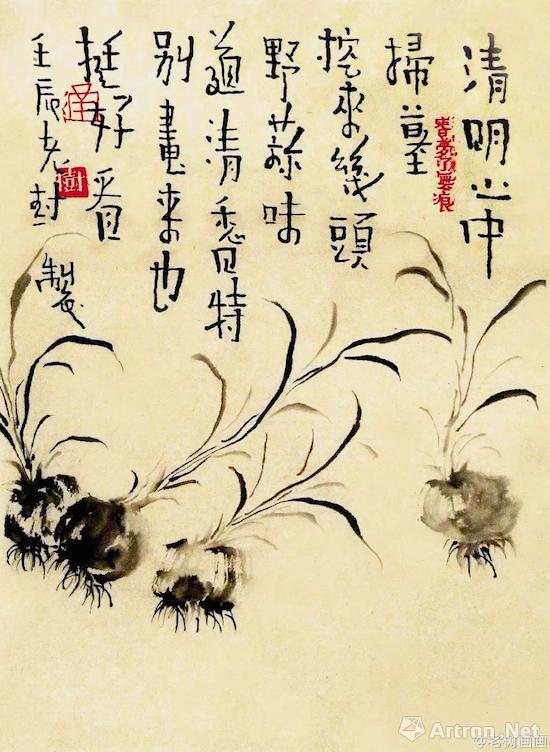 清明山中
掃墓
春夢了無痕
挖來幾頭
野蒜味
道清香且特
別畫來也
挺好看
壬辰老樹製
樹
Artron.Net
@老树画画